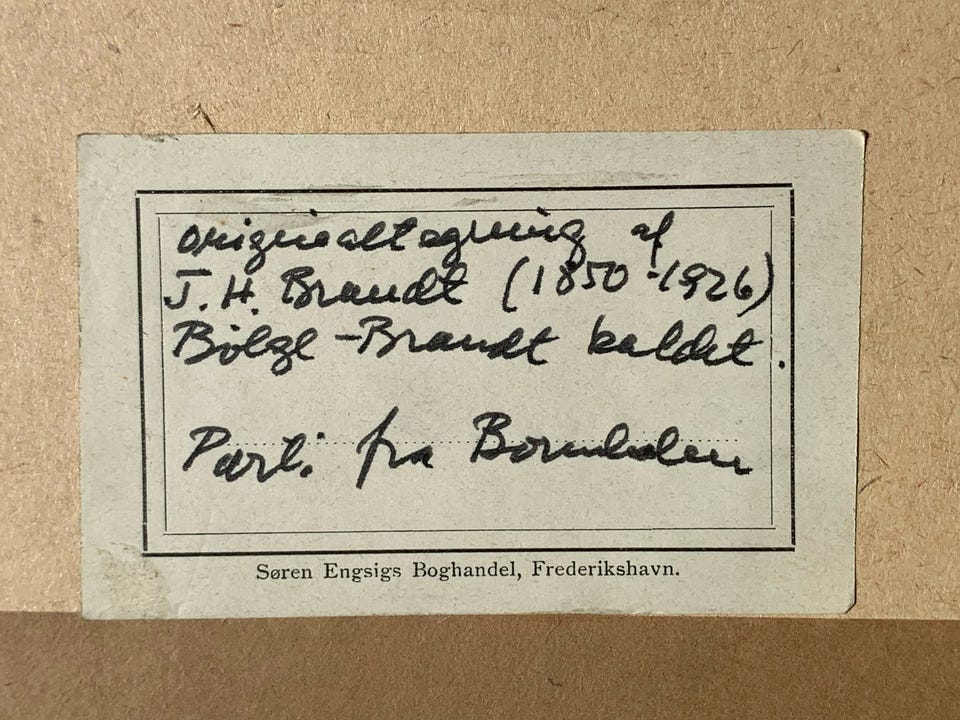 originaltegning af
J. H. Brandt (1850-1926)
Bølge-Brandt kaldet.
Parti fra Bornholm
Søren Engsigs Boghandel, Frederikshavn.